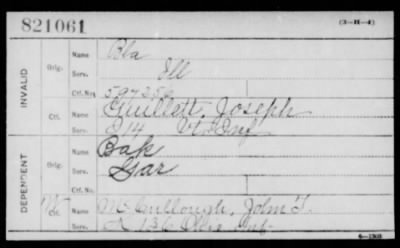 821061
(3-H-4)
INVALID
Orig.
Name Bla
Serv. Ill
Ctf. No. 597256
Ctf.
Name Guillett, Joseph
Serv. 14 Vt. Inf
DEPENDENT
Orig.
Name Bak
Serv. Gar
W
Ctf.
Name McCullough, John T.
Serv. A 136 Ohio Inf.
6-1303